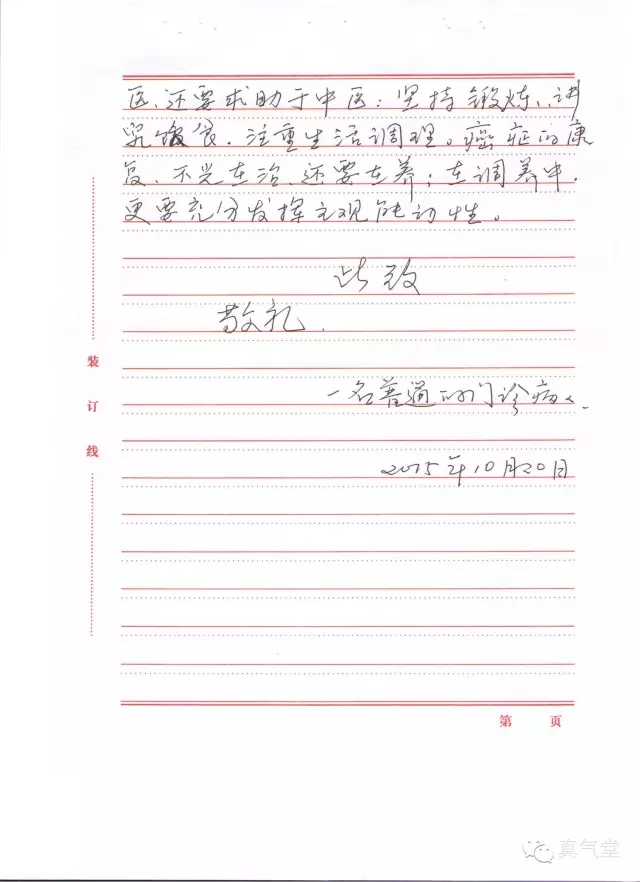 医、还要求助于中医；坚持锻炼、讲
究饮食、注重生活调理。癌症的康
复、不光在治、还要在养；在调养中，
更要充分发挥主观能动性。
此致
敬礼.
一名普通的门诊病人
2015年10月20日
装
订
线
第 页
真气堂